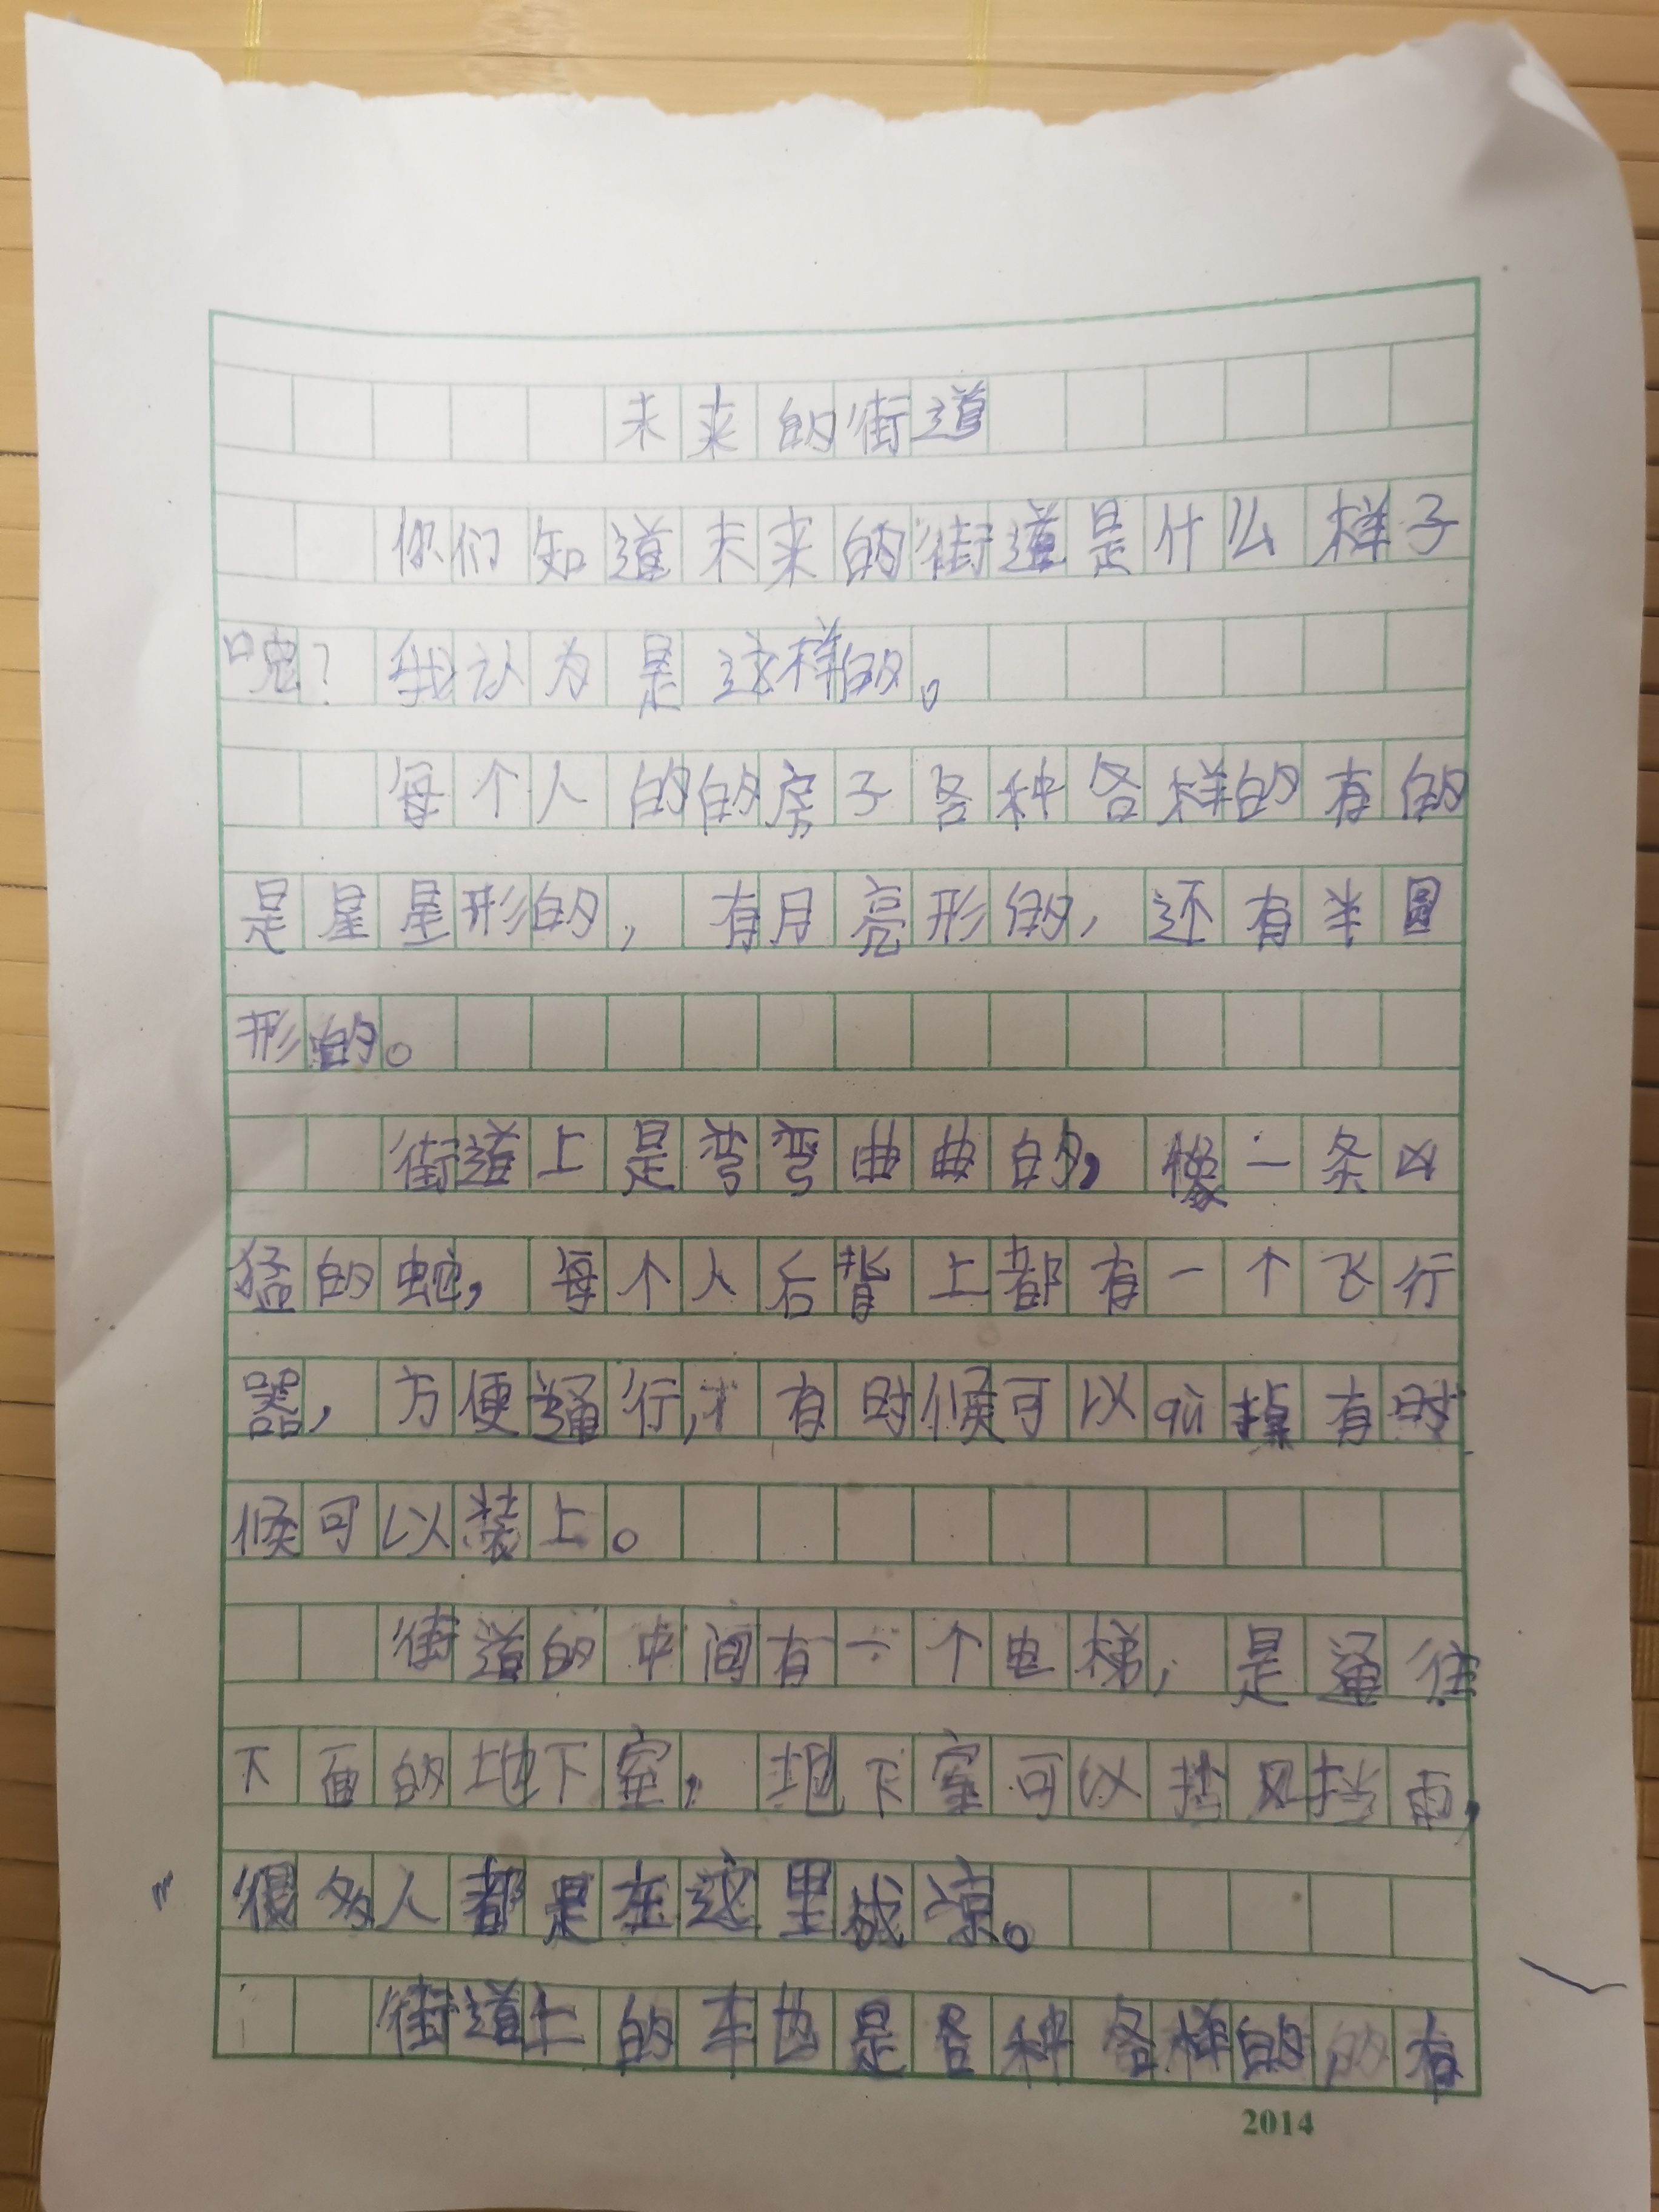 未来的街道
你们知道未来的街道是什么样子
呢？我认为是这样的。
每个人的的房子各种各样的有的
是星星形的，有月亮形的，还有半圆
形的。
街道上是弯弯曲曲的，像一条凶
猛的蛇，每个人后背上都有一个飞行
器，方便通行，有时候可以qǔ掉有时
候可以装上。
街道的中间有一个电梯，是通往
下面的地下室。地下室可以挡风挡雨，
很多人都是在这里成凉。
街道上的车也是各种各样的的有
2014